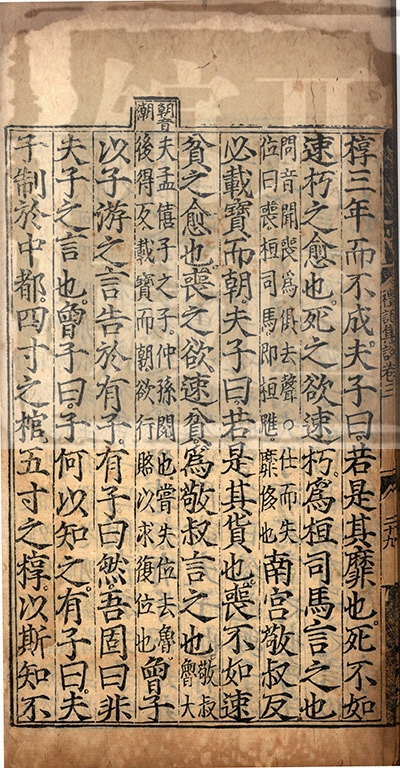 椁三年而不成。夫子曰。若是其靡也。死不如
速朽之愈也。死之欲速朽。爲桓司馬言之也
問音聞喪爲俱去聲○仕而失
位曰喪桓司馬即桓魋靡侈也
南宮敬叔反
必載寶而朝。夫子曰。若是其貨也。喪不如速
貧之愈也。喪之欲速貧。爲敬叔言之也
敬叔
魯大
朝音
潮
夫孟僖子之子仲孫閱也嘗失位去魯
後得反載寶而朝欲行賂以求復位也
曾子
以子游之言告於有子。有子曰。然。吾固曰非
夫子之言也。曾子曰。子何以知之。有子曰。夫
子制於中都。四寸之棺。五寸之椁。以斯知不